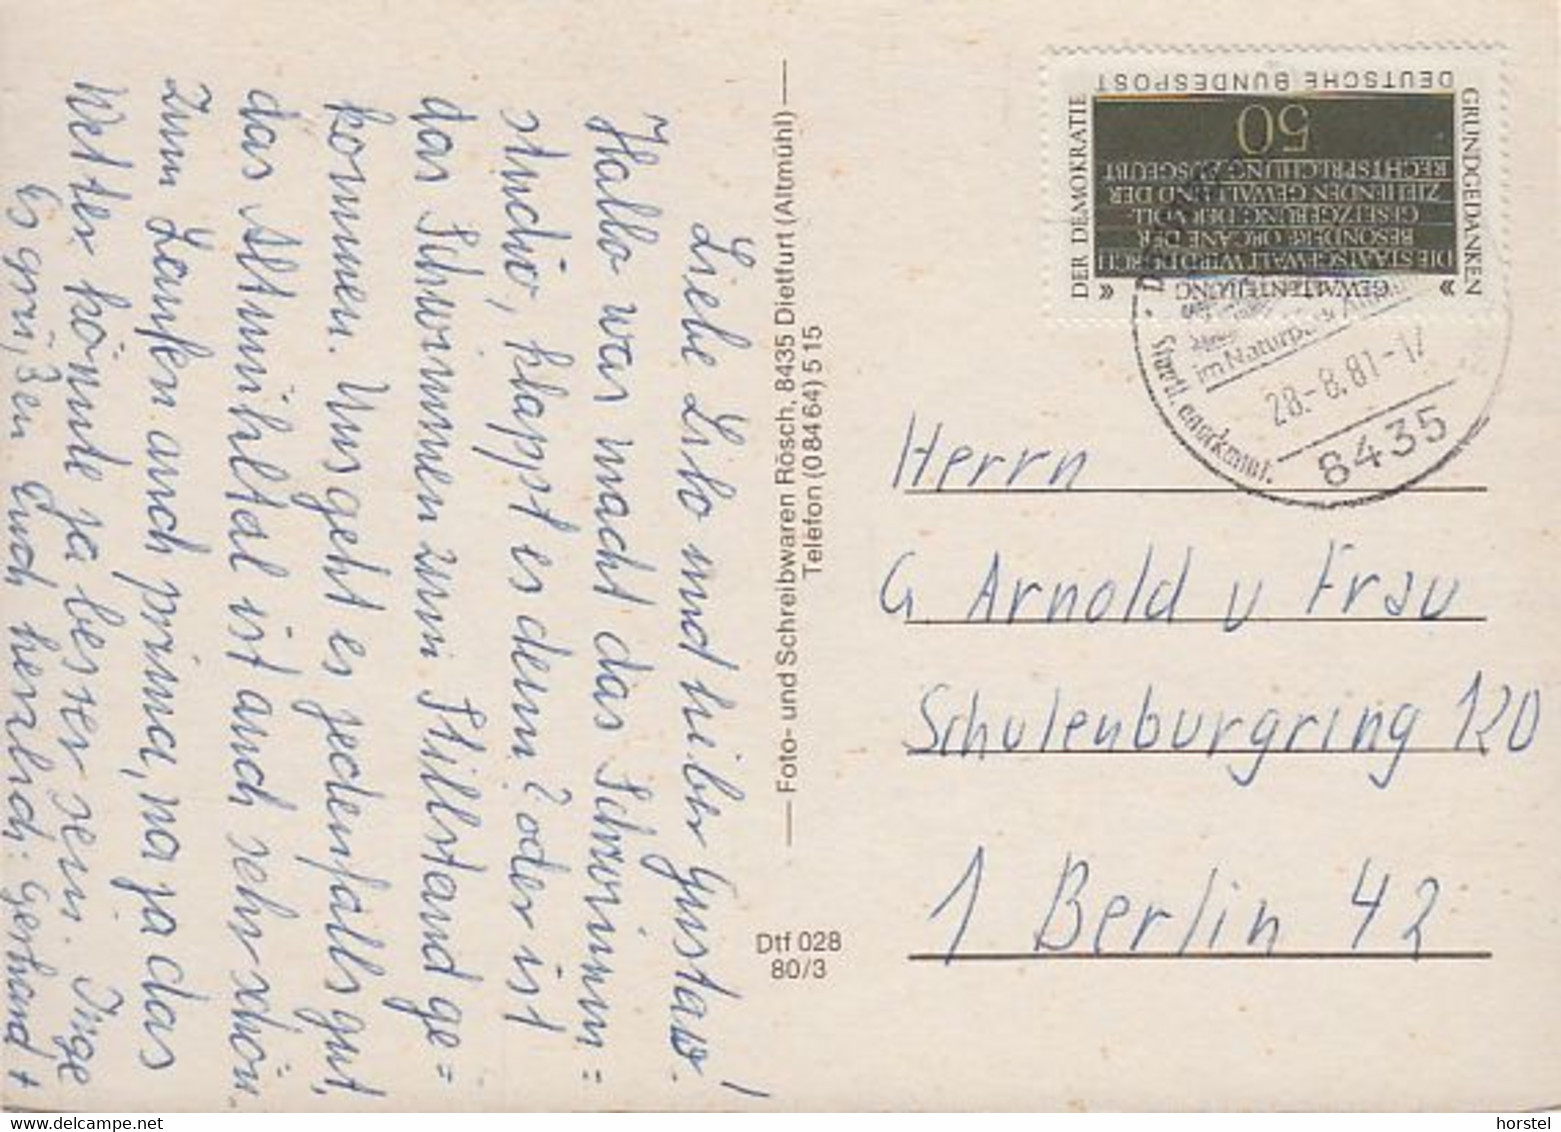 Liebe Lilo und lieber Gustav!
Hallo was macht das Schwimm=
studio, klappt es denn? oder ist
das Schwimmen zum Stillstand ge=
kommen. Uns geht es jedenfalls gut,
das Altmühltal ist auch sehr schön.
Zum Laufen auch prima, na ja das
Wetter könnte ja besser sein.
Es grüßen Euch herzlich: Gerhard + Inge
Foto- und Schreibwaren Rösch, 8435 Dietfurt (Altmühl)
Telefon (08464) 515
Dtf 028
80/3
DEUTSCHE BUNDESPOST
GRUNDGEDANKEN
DER DEMOKRATIE
50
»GEWALTENTEILUNG«
DIE STAATSGEWALT WIRD DURCH
BESONDERE ORGANE DER
GESETZGEBUNG DER VOLL-
ZIEHENDEN GEWALT UND DER
RECHTSPRECHUNG AUSGEÜBT
im Naturpark
28.-8.81-17
8435
Herrn
G. Arnold u Frau
Schulenburgring 120
1 Berlin 42
horstel
delcampe.net